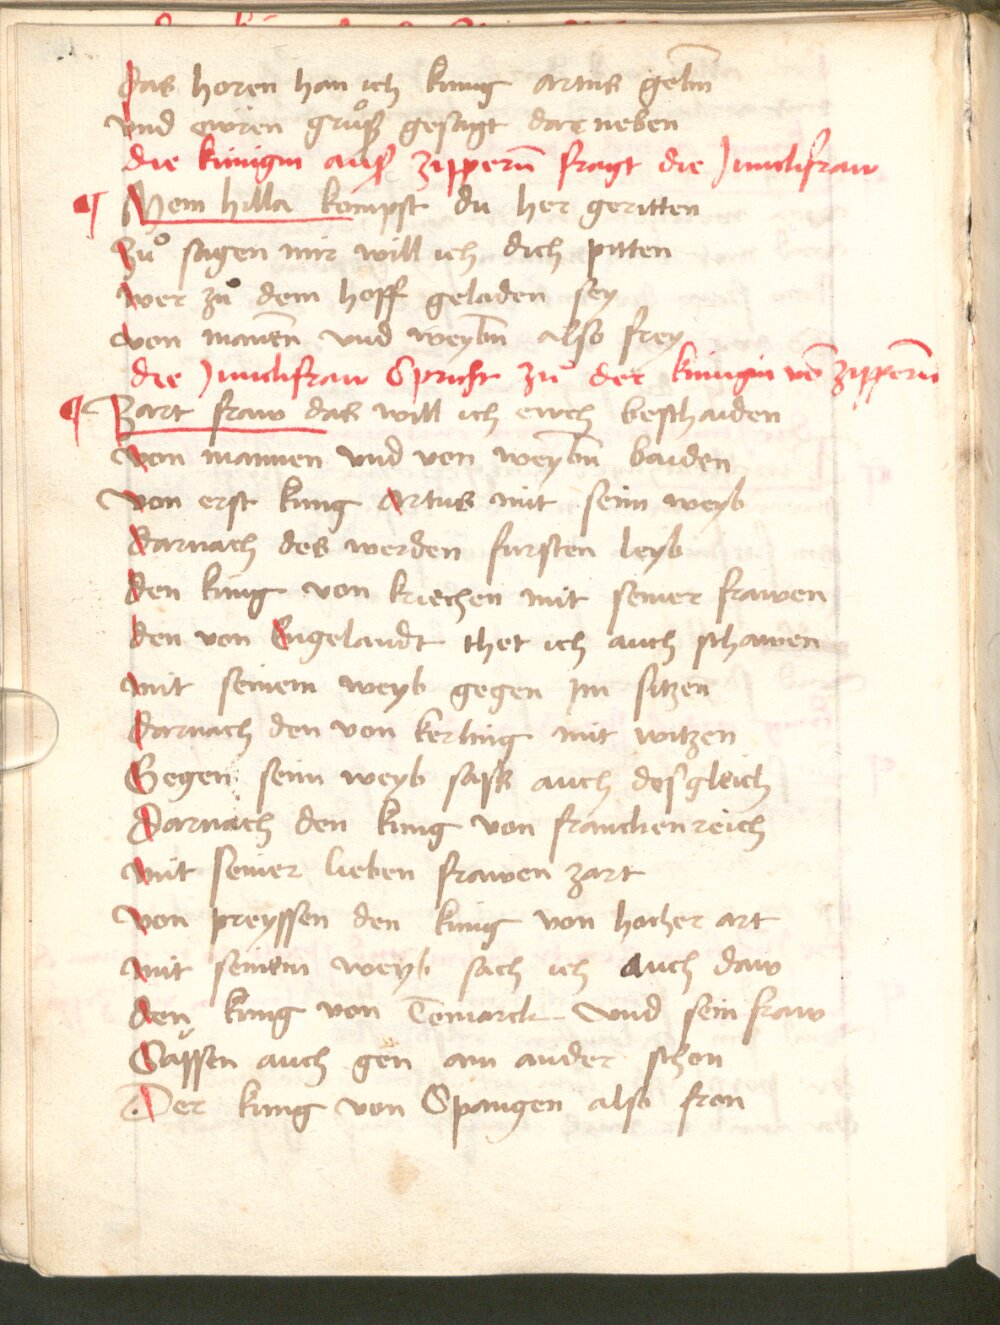 das horen han ich kunig artus gebm̄
vnd ewren gruͦß gesagt dar neben
die kunigin auß zippern̄ fragt die Junckfraw
¶ Mein hilla kompst du her geritten
Zuͦ sagen mir will ich dich pitten
wer zuͦ dem hoff geladen sey
von manen̄ vnd weybn̄ also frey
die Junckfraw Spricht zuͦ der kunigin vō zippern̄
¶ Zart fraw das will ich ewch beschaiden
von mannen vnd von weybn̄ baiden
von erst kung Artus mit seim weyb
darnach des werden fursten leyb
den kung von kriechen mit seiner frawen
den von Engelandt thet ich auch schawen
mit seinem weyb gegen Im sitzen
darnach den von kerling mit witzen
Gegen seim weyb saß auch desgleich
Darnach den kung von franckenreich
mit seiner lieben frawen zart
von preyssen den kung von hocher art
mit seinem weyb sach ich auch daw
den kung von Tenmarck vnd sein fraw
Sassen auch gen am ander schon
Der kung von Spangen also fron